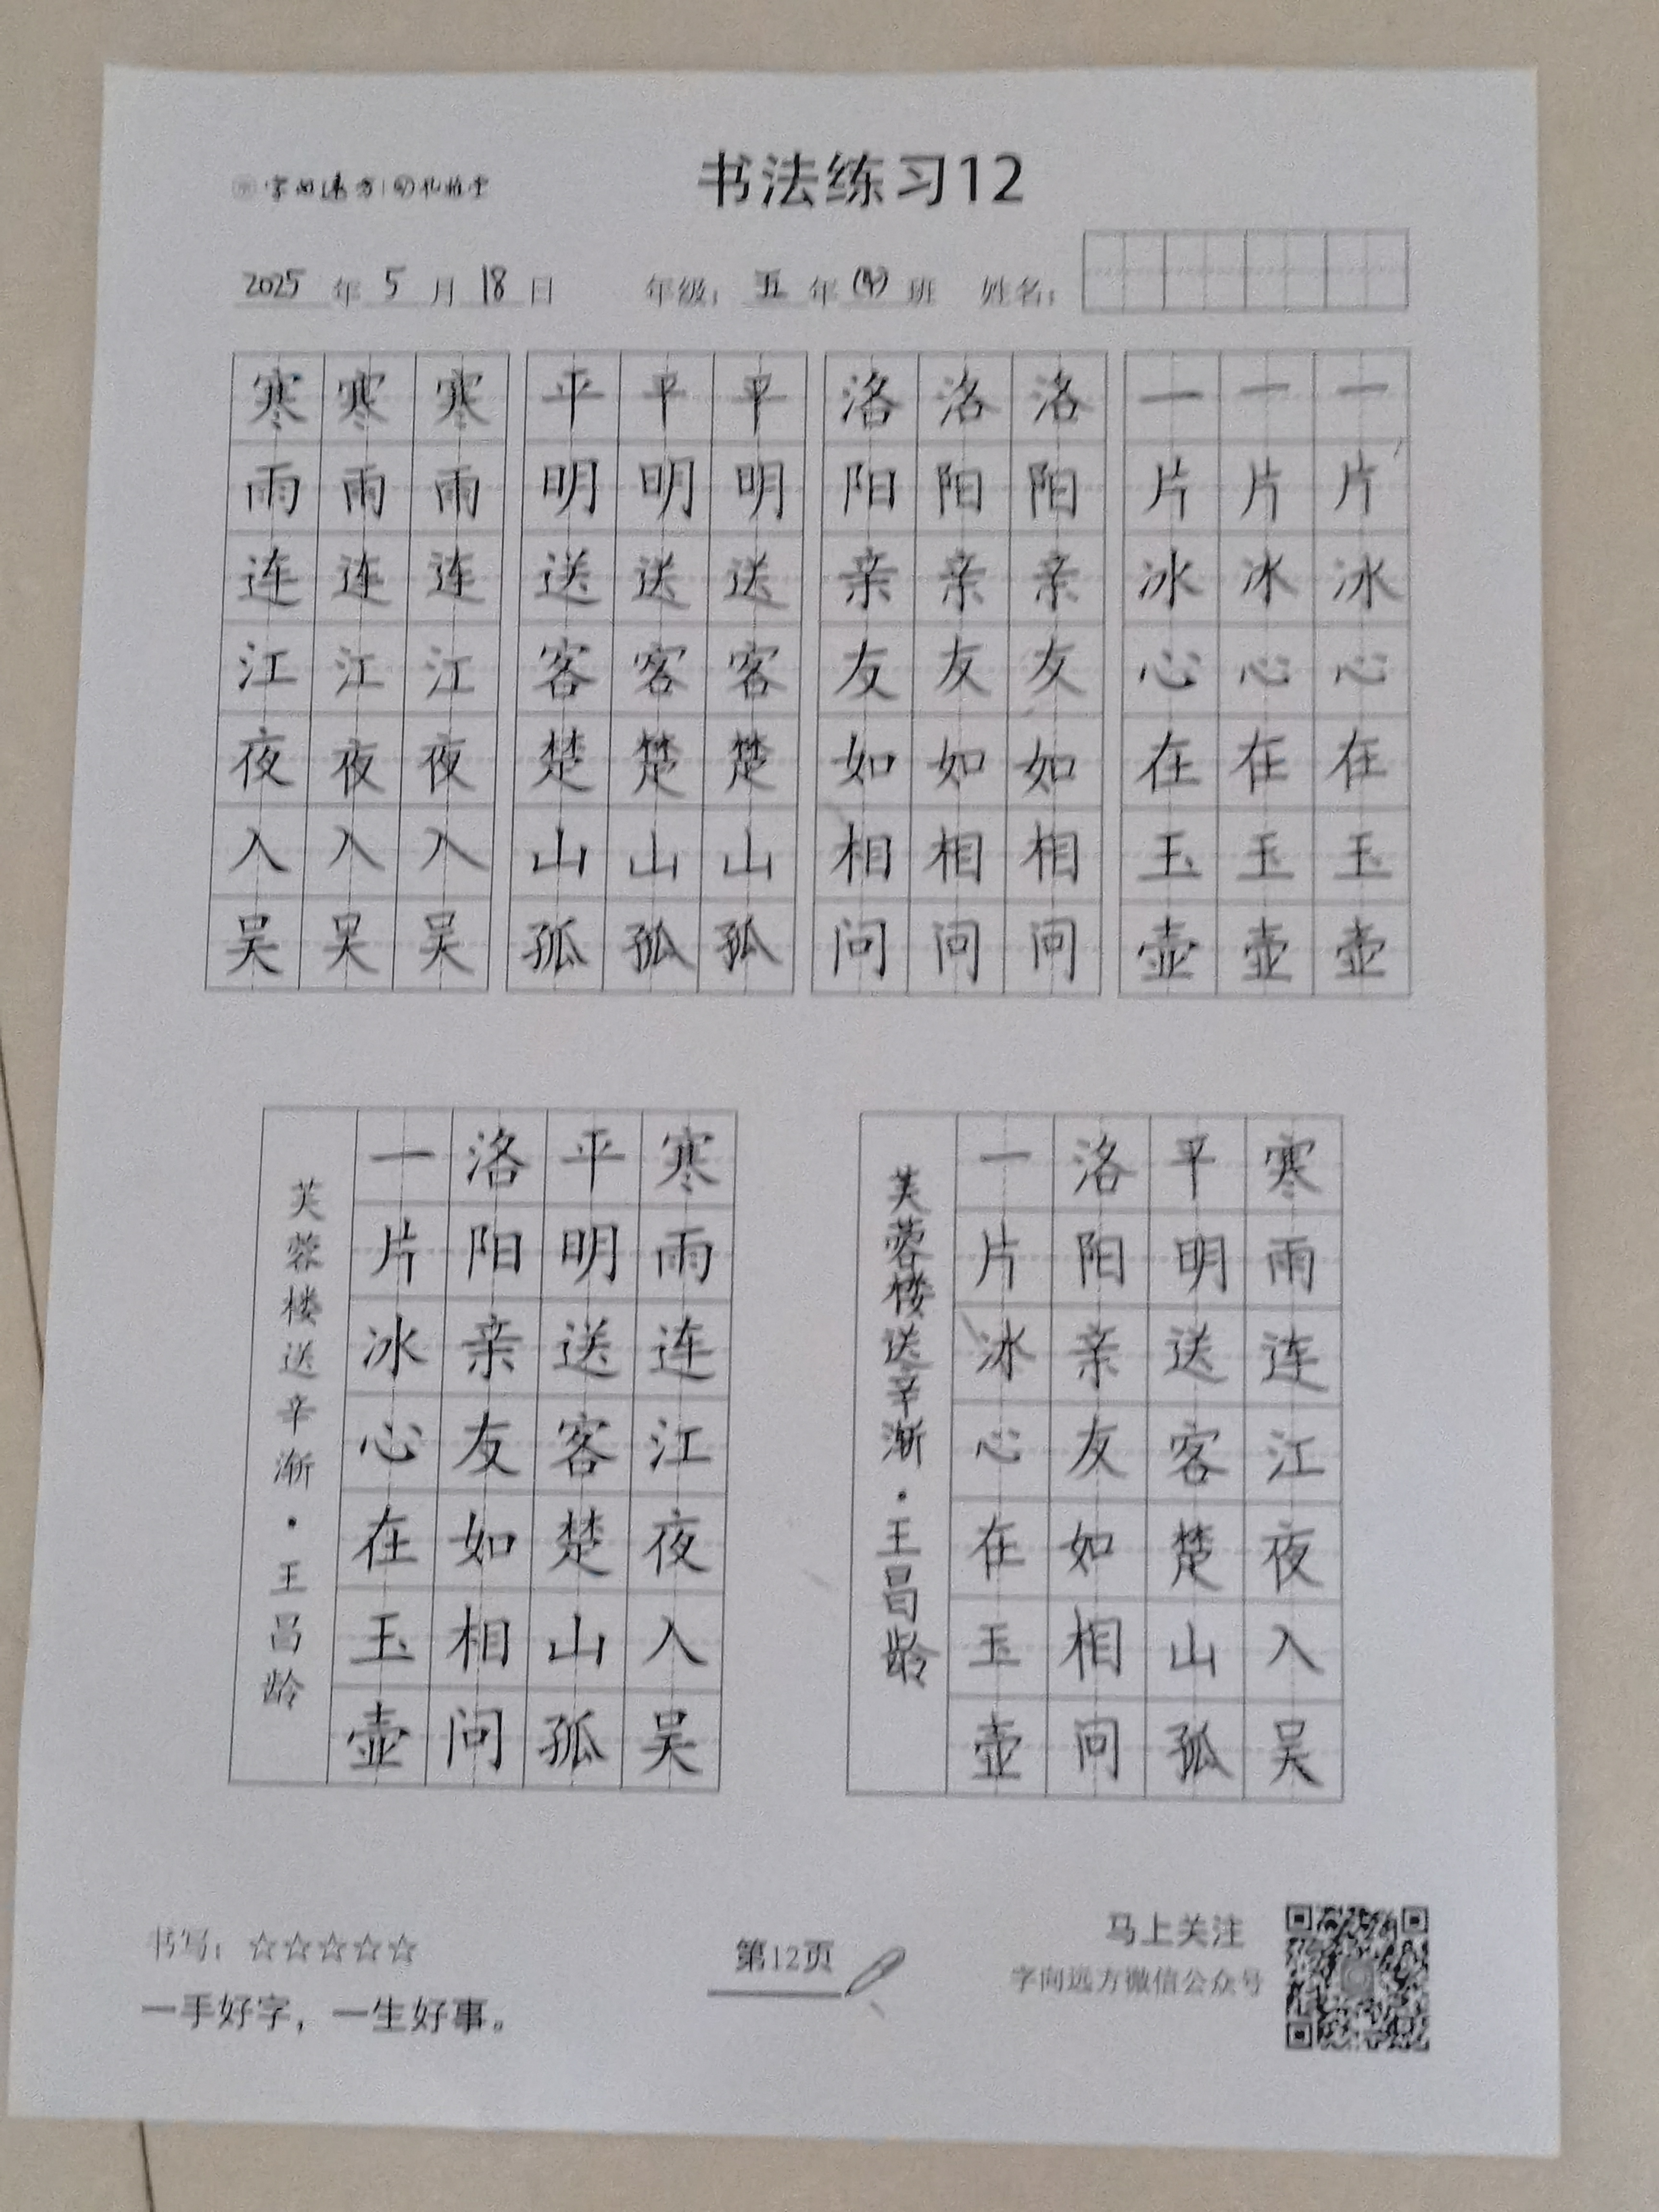 书法练习12
2025年5月18日 年级：五年(4)班 姓名：
寒寒寒 平平平 洛洛洛 一一一
雨雨雨 明明明 阳阳阳 片片片
连连连 送送送 亲亲亲 冰冰冰
江江江 客客客 友友友 心心心
夜夜夜 楚楚楚 如如如 在在在
入入入 山山山 相相相 玉玉玉
吴吴吴 孤孤孤 问问问 壶壶壶
寒雨连江夜入吴
平明送客楚山孤
洛阳亲友如相问
一片冰心在玉壶
芙蓉楼送辛渐·王昌龄
寒雨连江夜入吴
平明送客楚山孤
洛阳亲友如相问
一片冰心在玉壶
芙蓉楼送辛渐·王昌龄
书写：☆☆☆☆☆
一手好字，一生好事。
第12页
马上关注
字向远方微信公众号